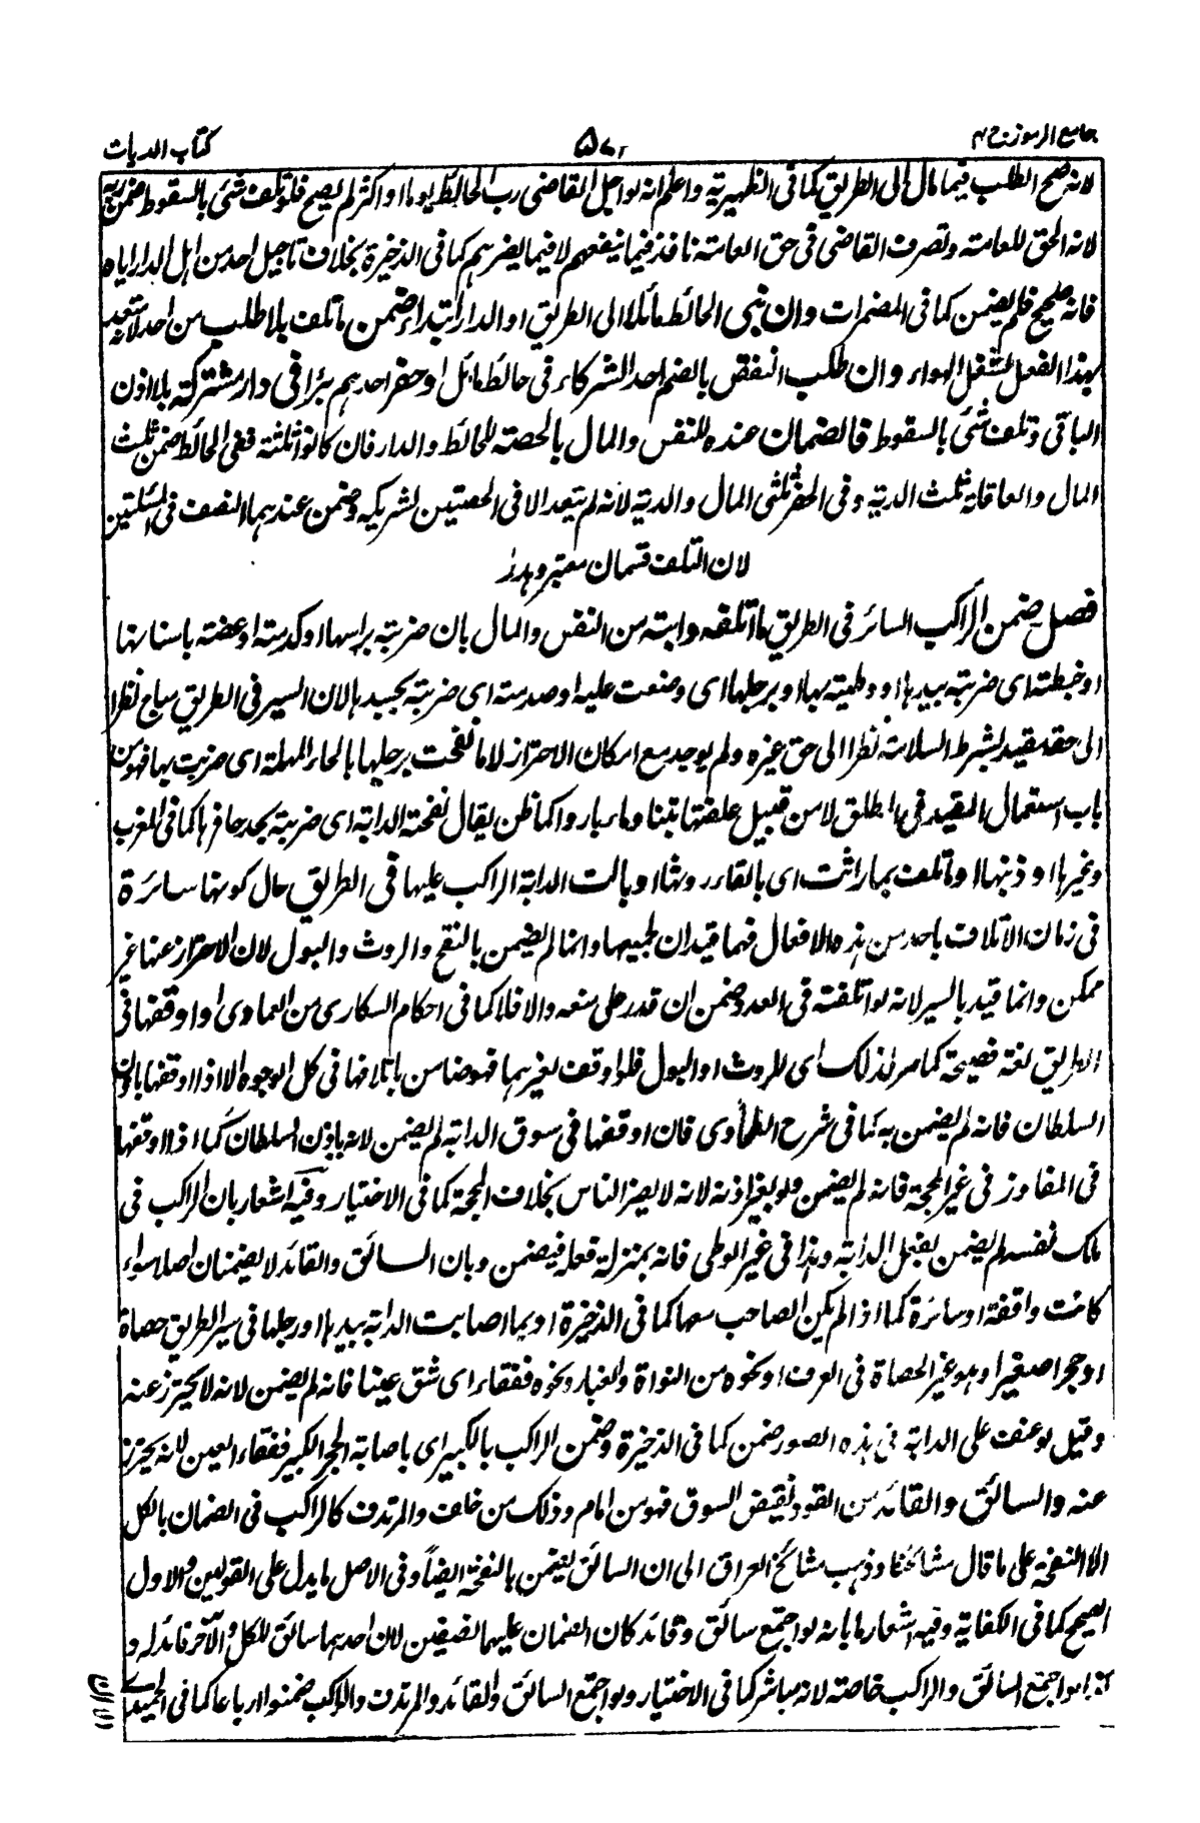 جامع الرموز ج ٢
كتاب الديات
لانه صح الطلب فيما مال الى الطريق كما فى الظهيرية واعلم انه لو اجل القاضى رب الحائط يوما او اكثر لم يصح فلو تلف شئ بالسقوط ضمن ربه
لانه الحق للعامة وتصرف القاضى فى حق العامة نافذ فيما ينفعهم لا فيما يضرهم كما فى الذخيرة بخلاف تاجيل احد من اهل الدار اياه
فانه صحيح فلم يضمن كما فى المضمرات وان بنى الحائط مائلا الى الطريق او الدار ابتداء ضمن ما تلف بلا طلب من احد لانه تعد
بهذا الفعل لشغل الهواء وان طلب النقض بالضم احد الشركاء فى حائط مائل او حفر احدهم بئرا فى دار مشتركة بلا اذن
الباقى وتلف شئ بالسقوط فالضمان عنده للنفس والمال بالحصة للحائط والدار فان كانوا ثلثة ففى الحائط ضمن ثلث
المال والعاقلة ثلث الدية وفى الحفر ثلثى المال والدية لانه لم يتعد الا فى الحصتين لشريكه وضمن عندهما النصف فى المسئلتين
لان التلف قسمان معتبر وهدر
فصل ضمن الراكب السائر فى الطريق ما اتلفه دابته من النفس والمال بان ضربته براسها او كدمته او عضته باسنانها
او خبطته اى ضربته بيدها او وطيته بها او برجلها اى وضعت عليه او صدمته اى ضربته بجسدها لان السير فى الطريق مباح نظرا
الى حقه مقيد بشرط السلامة نظرا الى حق غيره ولم يوجد مع امكان الاحتراز لا ما نفحت برجلها بالحاء المهملة اى ضربت بها فهو من
باب استعمال المقيد فى المطلق لا من قبيل علفتها تبنا وماء باردا كما ظن يقال نفحته الدابة اى ضربته بحد حافرها كما فى المغرب
وغيرها او ذنبها او ما تلف بما راثت اى بالقاء روثها او بالت الدابة الراكب عليها فى الطريق حال كونها سائرة
فى زمان الاتلاف باحد من هذه الافعال فهما قيدان لجميعها وانما لم يضمن بالنفح والروث والبول لان الاحتراز عنها غير
ممكن وانما قيد بالسير لانه لو اتلفته فى العدو ضمن ان قدر على منعه والا فلا كما فى احكام السكارى من العمادى او اوقفها فى
الطريق لغة فصيحة كما مر لذلك اى للروث او البول فلو اوقف لغيرهما فهو ضامن باتلافها فى كل الوجوه الا اذا اوقفها باذن
السلطان فانه لم يضمن به كما فى شرح الطحاوى فان اوقفها فى سوق الدابة لم يضمن لانه باذن السلطان كما اذا اوقفها
فى المفاوز فى غير المحجة فانه لم يضمن ولو بغير اذنه لانه لا يضر الناس بخلاف المحجة كما فى الاختيار وفيه اشعار بان الراكب فى
ملك نفسه لم يضمن بفعل الدابة وهذا فى غير الوطى فانه بمنزلة فعله فيضمن وبان السائق والقائد لا يضمنان اصلا سواء
كانت واقفة او سائرة كما اذا لم يكن الصاحب معها كما فى الذخيرة او بما اصابت الدابة بيدها او رجلها فى سير الطريق حصاة
او حجرا صغيرا وهو غير الحصاة فى العرف او نحوه من النواة والغبار ونحوه ففقاء اى شق عينا فانه لم يضمن لانه لا يحترز عنه
وقيل لو عنف على الدابة فى هذه الصور ضمن كما فى الذخيرة وضمن الراكب بالكبير اى باصابة الحجر الكبير ففقاء العين لانه يحترز
عنه والسائق والقائد من القود نقيض السوق فهو من امام وذلك من خلف والمرتدف كالراكب فى الضمان بالكل
الا النفحة على ما قال مشائخنا وذهب مشائخ العراق الى ان السائق يضمن بالنفحة ايضاً وفى الاصل ما يدل على القولين والاول
الصحيح كما فى الكفاية وفيه اشعار بانه لو اجتمع سائق وقائد كان الضمان عليهما نصفين لان احدهما سائق للكل والآخر قائد له و
لو اجتمع السائق والراكب خاصة لانه مباشر كما فى الاختيار ولو اجتمع السائق والقائد والمرتدف والراكب ضمنوا ارباعا كما فى